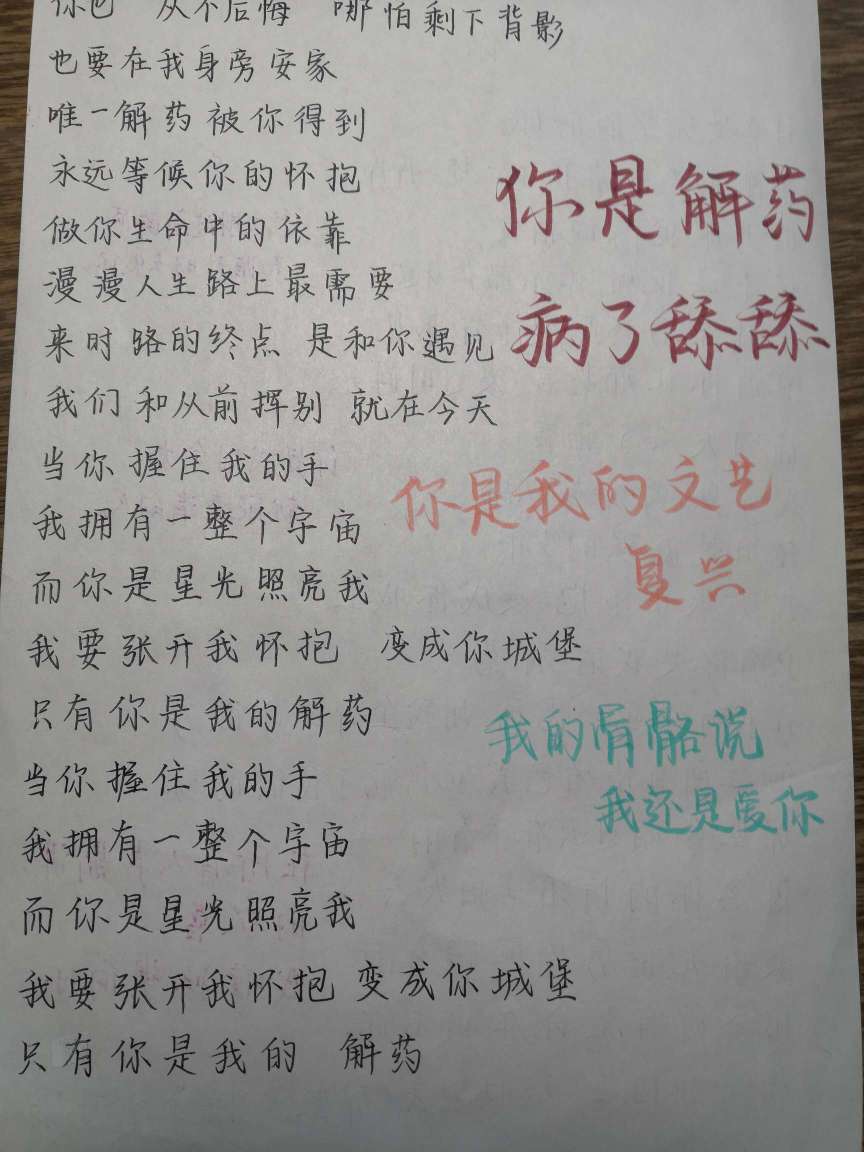 从不后悔 哪怕剩下背影
也要在我身旁安家
唯一解药被你得到
永远等候你的怀抱
做你生命中的依靠
漫漫人生路上最需要
来时路的终点 是和你遇见
我们和从前挥别 就在今天
当你握住我的手
我拥有一整个宇宙
而你是星光照亮我
我要张开我怀抱 变成你城堡
只有你是我的解药
当你握住我的手
我拥有一整个宇宙
而你是星光照亮我
我要张开我怀抱 变成你城堡
只有你是我的 解药
你是解药
病了舔舔
你是我的文艺
复兴
我的骨骼说
我还是爱你